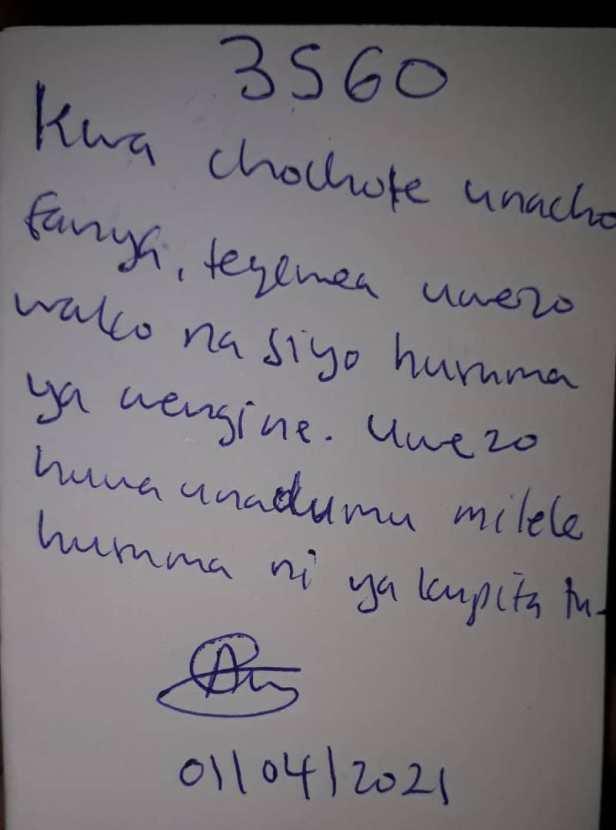 3560
Kwa chochote unacho
fanya, tegemea uwezo
wako na siyo huruma
ya wengine. Uwezo
huwa unadumu milele
huruma ni ya kupita tu.
01/04/2021